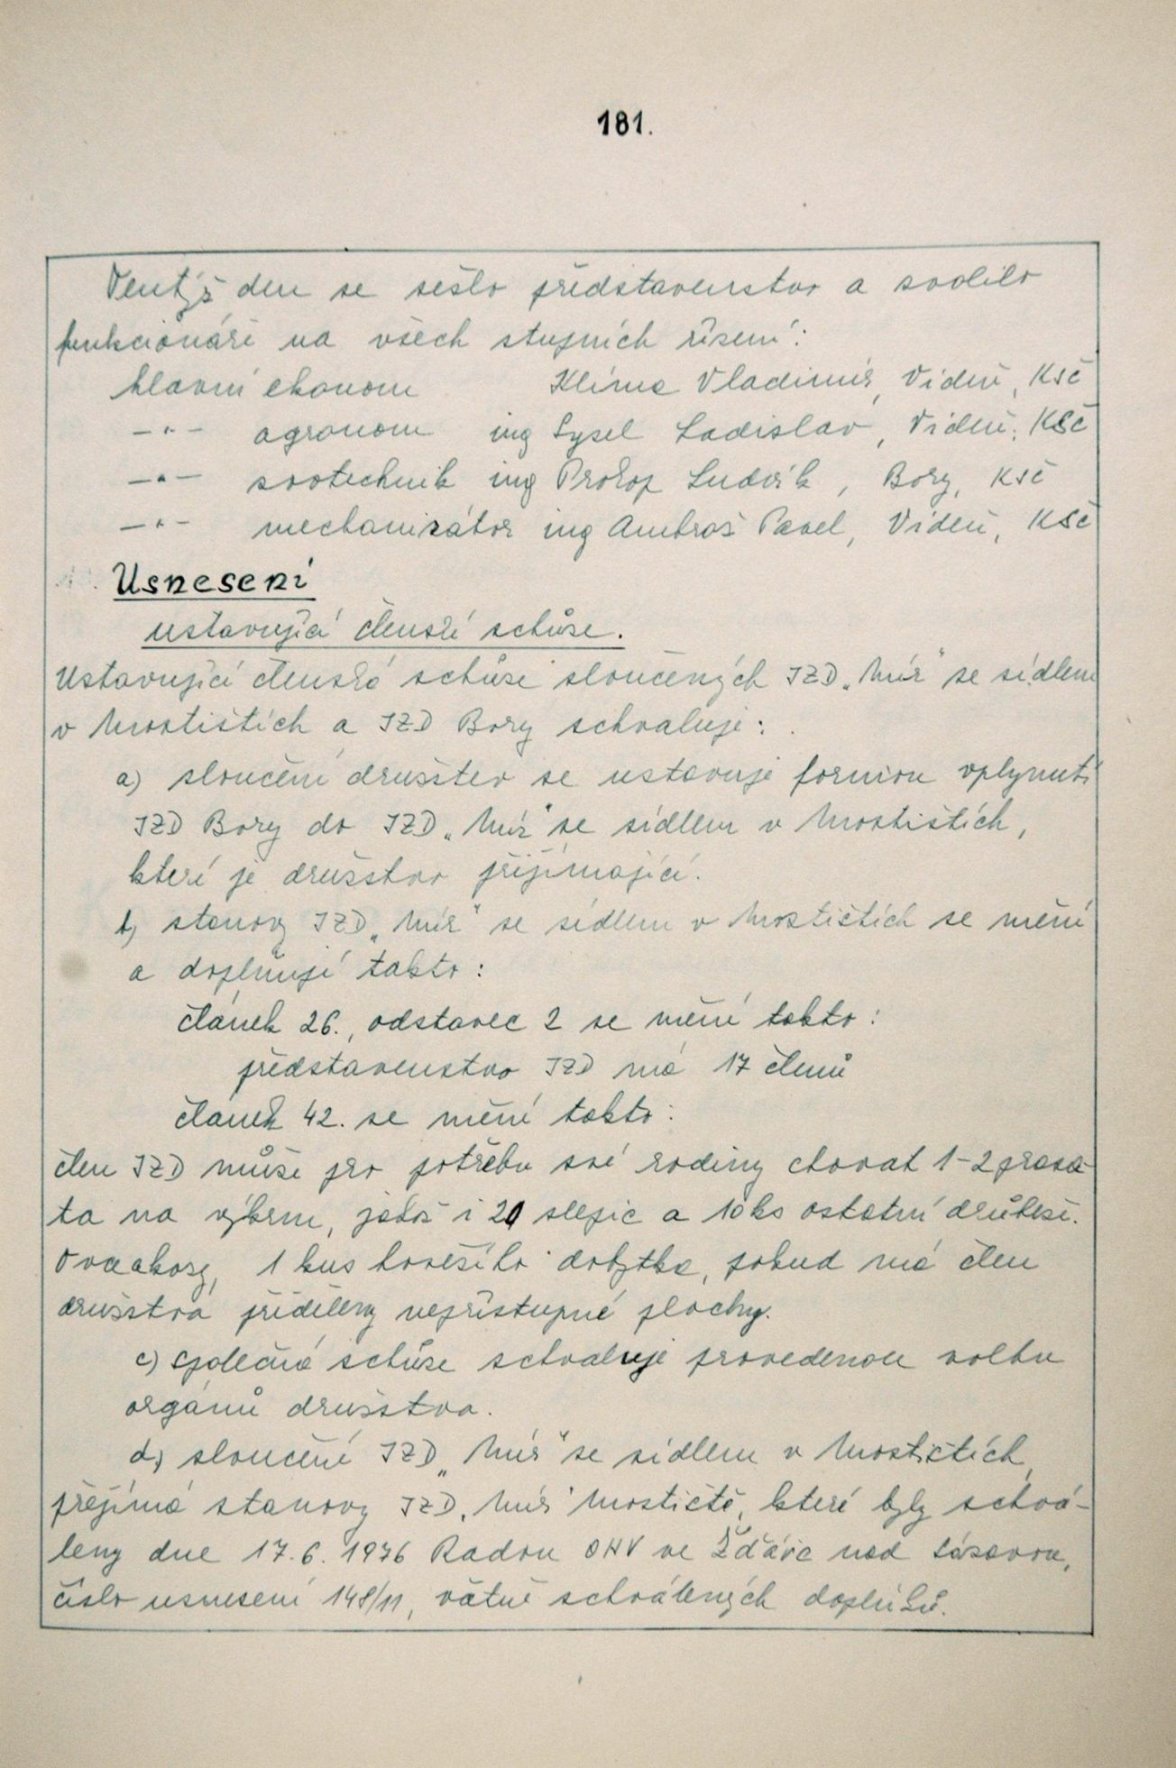 181.
Tentýž den se sešlo představenstvo a zvolilo
funkcionáře na všech stupních řízení:
hlavní ekonom Klíma Vladimír, Vídeň, KSČ
—"— agronom ing Sysel Ladislav, Vídeň, KSČ
—"— zootechnik ing Prokop Ludvík, Bory, KSČ
—"— mechanizátor ing Ambrož Pavel, Vídeň, KSČ
Usnesení
ustavující členské schůze.
Ustavující členská schůze sloučených JZD „Mír" se sídlem
v Mostištích a JZD Bory schvaluje:
a) sloučení družstev se ustavuje formou vplynutí
JZD Bory do JZD „Mír" se sídlem v Mostištích,
které je družstvo přijímající.
b) stanovy JZD „Mír" se sídlem v Mostištích se mění
a doplňují takto:
článek 26., odstavec 2 se mění takto:
představenstvo JZD má 17 členů
článek 42. se mění takto:
člen JZD může pro potřebu své rodiny chovat 1-2 prasa-
ta na výkrm, jakož i 20 slepic a 10 ks ostatní drůbeže.
Ovce a kozy, 1 kus hovězího dobytka, pokud má člen
družstva přiděleny nepřístupné plochy.
c) společná schůze schvaluje provedenou volbu
orgánů družstva.
d) sloučené JZD „Mír" se sídlem v Mostištích,
přejímá stanovy JZD „Mír" Mostiště, které byly schvá-
leny dne 17.6.1976 Radou ONV ve Žďáře nad Sázavou,
číslo usnesení 148/11, včetně schválených doplňků.